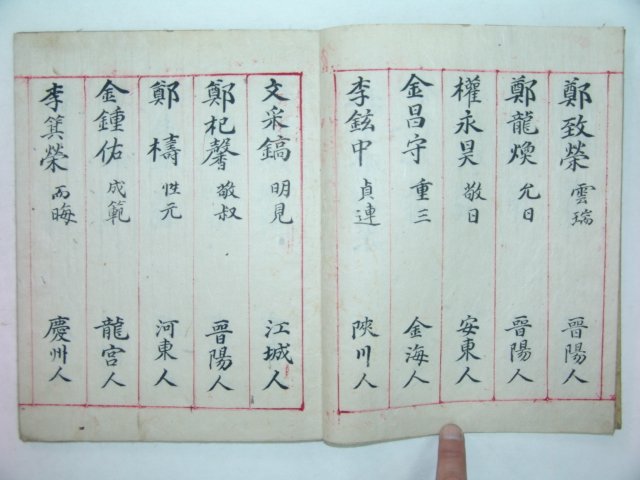 鄭致榮 雲瑞 晉陽人
鄭龍煥 允日 晉陽人
權永昊 敬日 安東人
金昌守 重三 金海人
李鉉中 貞連 陜川人
文采鎬 明見 江城人
鄭杞馨 敬叔 晉陽人
鄭檮 性元 河東人
金鍾佑 成範 龍宮人
李箕榮 而晦 慶州人